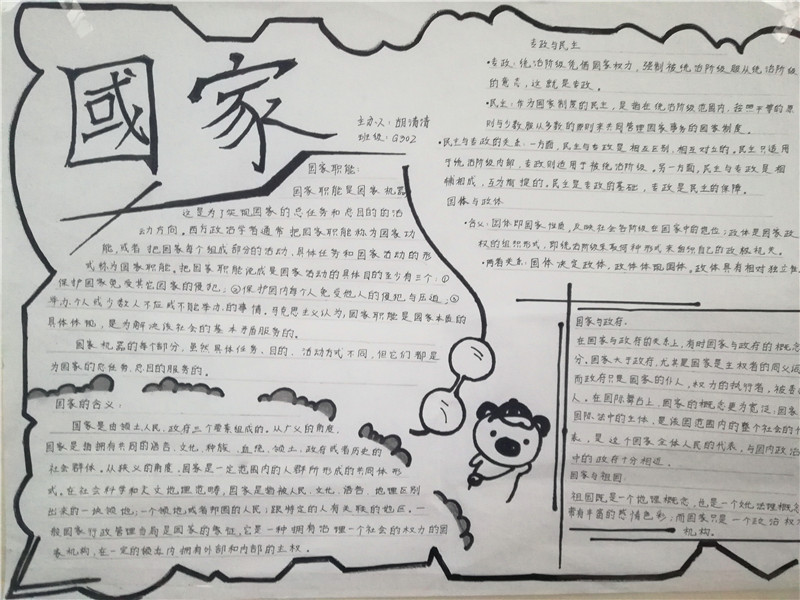 國家
主办人:胡清清
班级:G302
国家职能:
国家职能是国家机器
这是为了实现国家的总任务和总目的的活
动方向。西方政治学者通常把国家职能称为国家功
能,或者把国家每个组成部分的活动,具体任务和国家活动的形
式称为国家职能。把国家职能说成是国家活动的具体目的至少有三个:①
保护国家免受其它国家的侵犯;②保护国内每个人免受他人的侵犯与压迫;③
举办个人或少数人不应或不能举办的事情。马克思主义认为,国家职能是国家本质的
具体体现,是为解决该社会的基本矛盾服务的。
国家机器的每个部分,虽然具体任务、目的、活动方式不同,但它们都是
为国家的总任务总目的服务的。
国家的含义:
国家是由领土人民,政府三个要素组成的。从广义的角度,
国家是指拥有共同的语言、文化、种族、血统、领土、政府或者历史的
社会群体。从狭义的角度,国家是一定范围内的人群所形成的共同体形
式。在社会科学和人文地理范畴,国家是指被人民、文化、语言、地理区别
出来的一块领地;一个领地或者邦国的人民;跟特定的人有关联的地区。一
般国家行政管理当局是国家的象征,它是一种拥有治理一个社会的权力的国
家机构,在一定的领土内拥有外部和内部的主权。
专政与民主
·专政:统治阶级凭借国家权力,强制被统治阶级服从统治阶级
的意志,这就是专政。
·民主:作为国家制度的民主,是指在统治阶级范围内,按照平等的原
则与少数服从多数的原则来共同管理国家事务的国家制度。
·民主与专政的关系:一方面,民主与专政是相互区别,相互对立的。民主只适用
于统治阶级内部,专政则适用于被统治阶级。另一方面,民主与专政是相
辅相成,互为前提的,民主是专政的基础,专政是民主的保障。
国体与政体
·含义:国体即国家性质,反映社会各阶级在国家中的地位;政体是国家政
权的组织形式,即统治阶级采取何种形式来组织自己的政权机关。
·两者关系:国体决定政体,政体体现国体,政体具有相对独立性
国家与政府:
在国家与政府的关系上,有时国家与政府的概念
分。国家大于政府,尤其是国家是主权者的同义词
而政府只是国家的仆人,权力的执行者,被委
人。在国际舞台上,国家的概念更为宽泛,国家
国际法中的主体,是该国范围内的整个社会的
系,是这个国家全体人民的代表,与国内政治
中的政府十分相近。
国家与祖国:
祖国既是一个地理概念,也是一个文化法理概念
带有丰富的感情色彩;而国家只是一个政治权
机构。